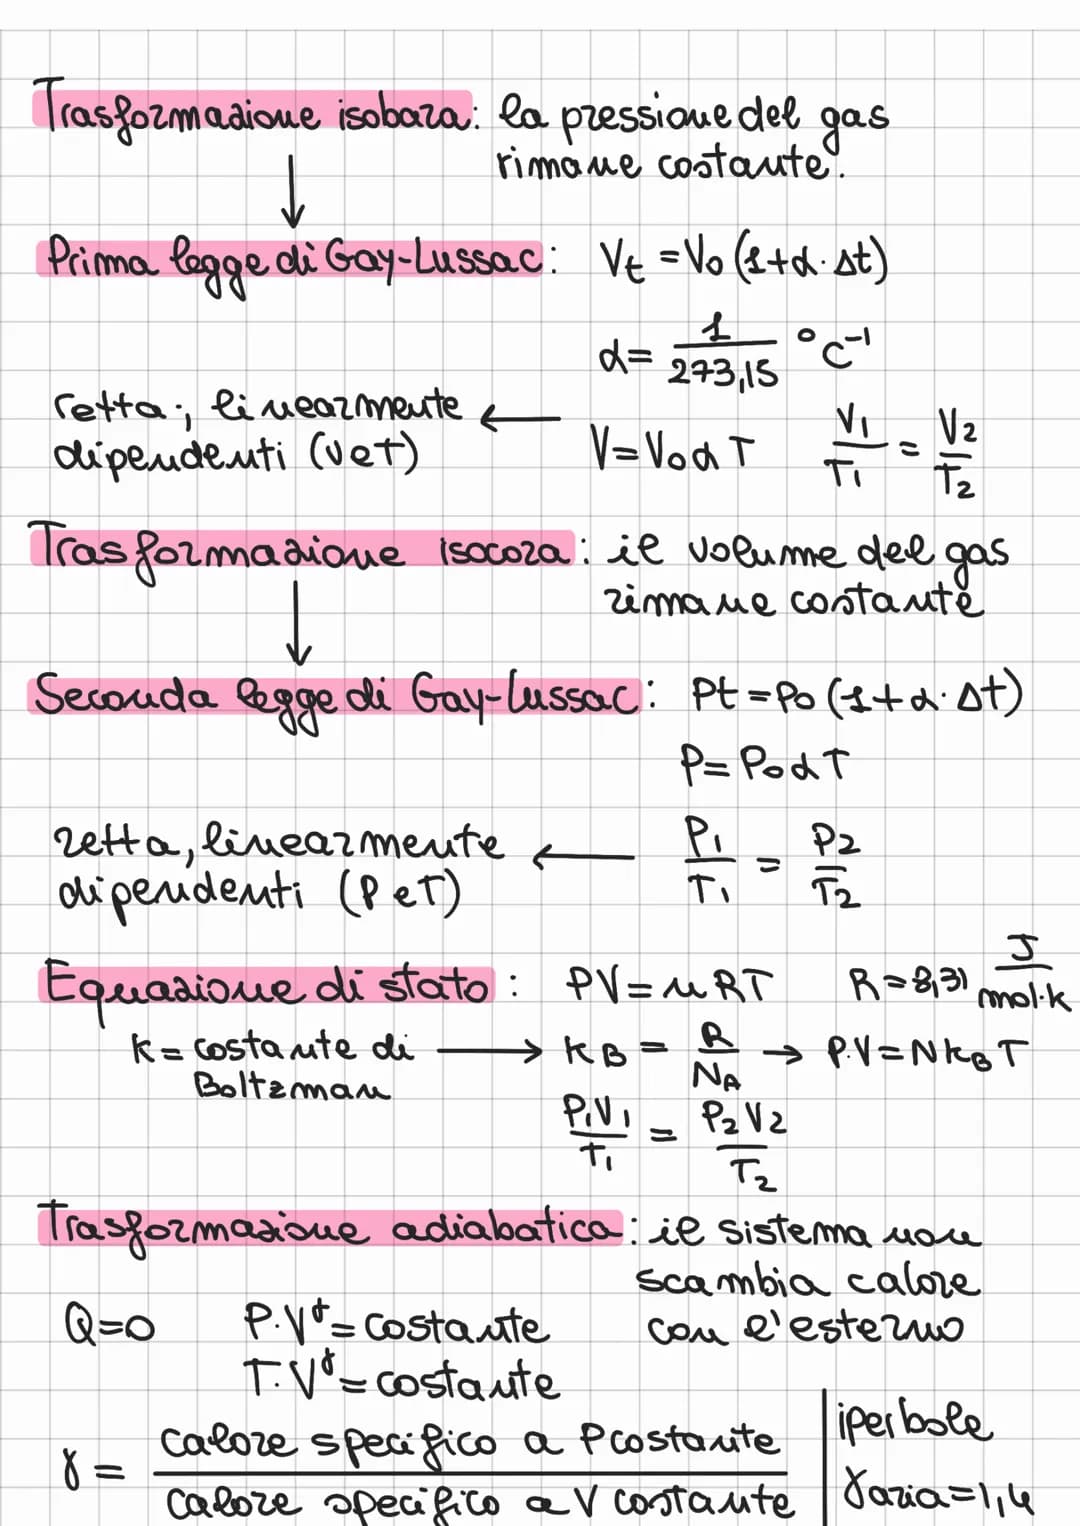 Trasformazione isobara: la pressione del gas
rimane costante.
↓
Prima legge di Gay-Lussac: Vt = V₀ (1+α·Δt)
α = 1/273,15 °C⁻¹
retta; linearmente ←
dipendenti (VeT)
V = V₀αT V₁/T₁ = V₂/T₂
Trasformazione isocora: il volume del gas
rimane costante
↓
Seconda legge di Gay-Lussac: Pt = P₀ (1+α·Δt)
P = P₀αT
retta, linearmente ←
dipendenti (PeT)
P₁/T₁ = P₂/T₂
Equazione di stato: PV = nRT R = 8,31 J/mol·K
K = costante di → KB = R/NA → P·V = NkBT
Boltzman
P₁V₁/T₁ = P₂V₂/T₂
Trasformazione adiabatica: il sistema non
scambia calore
con l'esterno
Q=0 P·V^γ = costante
T·V^γ = costante
γ = calore specifico a P costante / calore specifico a V costante
iperbole
γaria=1,4